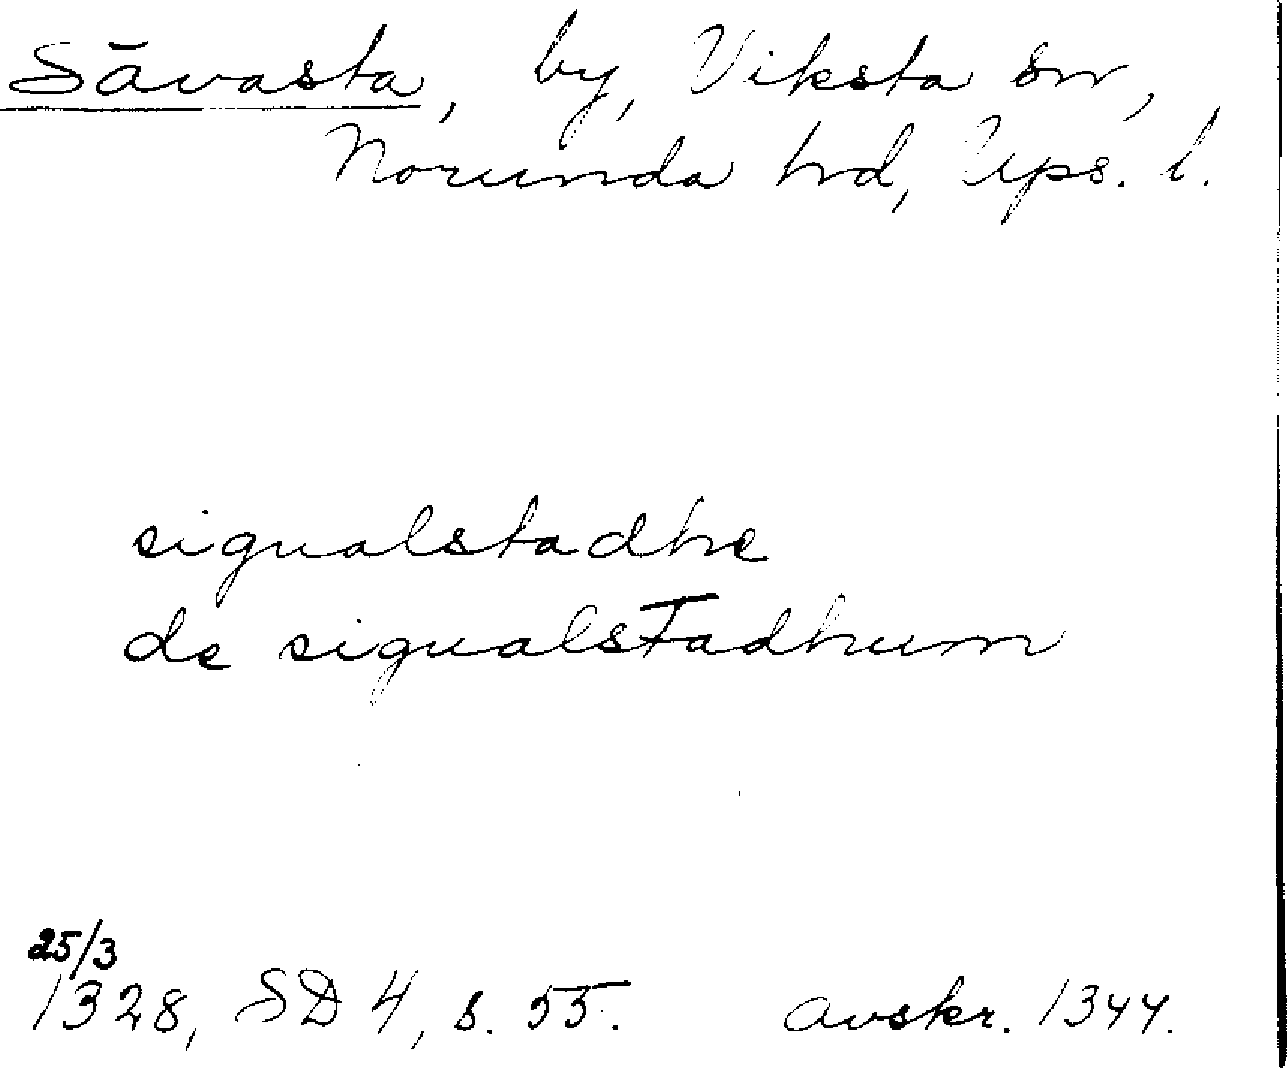 Sävasta, by, Viksta sn,
Norunda hd, Ups. l.
sigualstadhe
de sigualstadhum
25/3
1328, SD 4, s. 55. avskr. 1344.